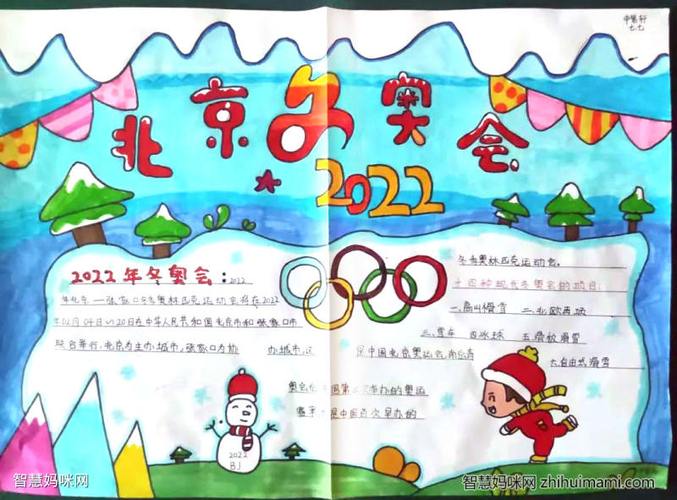 七七
北京冬奥会
2022
2022年冬奥会：2022
冬季奥林匹克运动会。
年北京—张家口冬季奥林匹克运动会将在2022
年02月04日~20日在中华人民共和国北京市和张家口市
联合举行，北京为主办城市，张家口为协 办城市，这 是中国
一、高山滑雪 二、北欧两项
三、雪车 四、冰球 五、
六、自由式滑雪
的奥运
是中国首次举办的
2022
BJ
智慧妈咪网
智慧妈咪网 zhihuimami.com